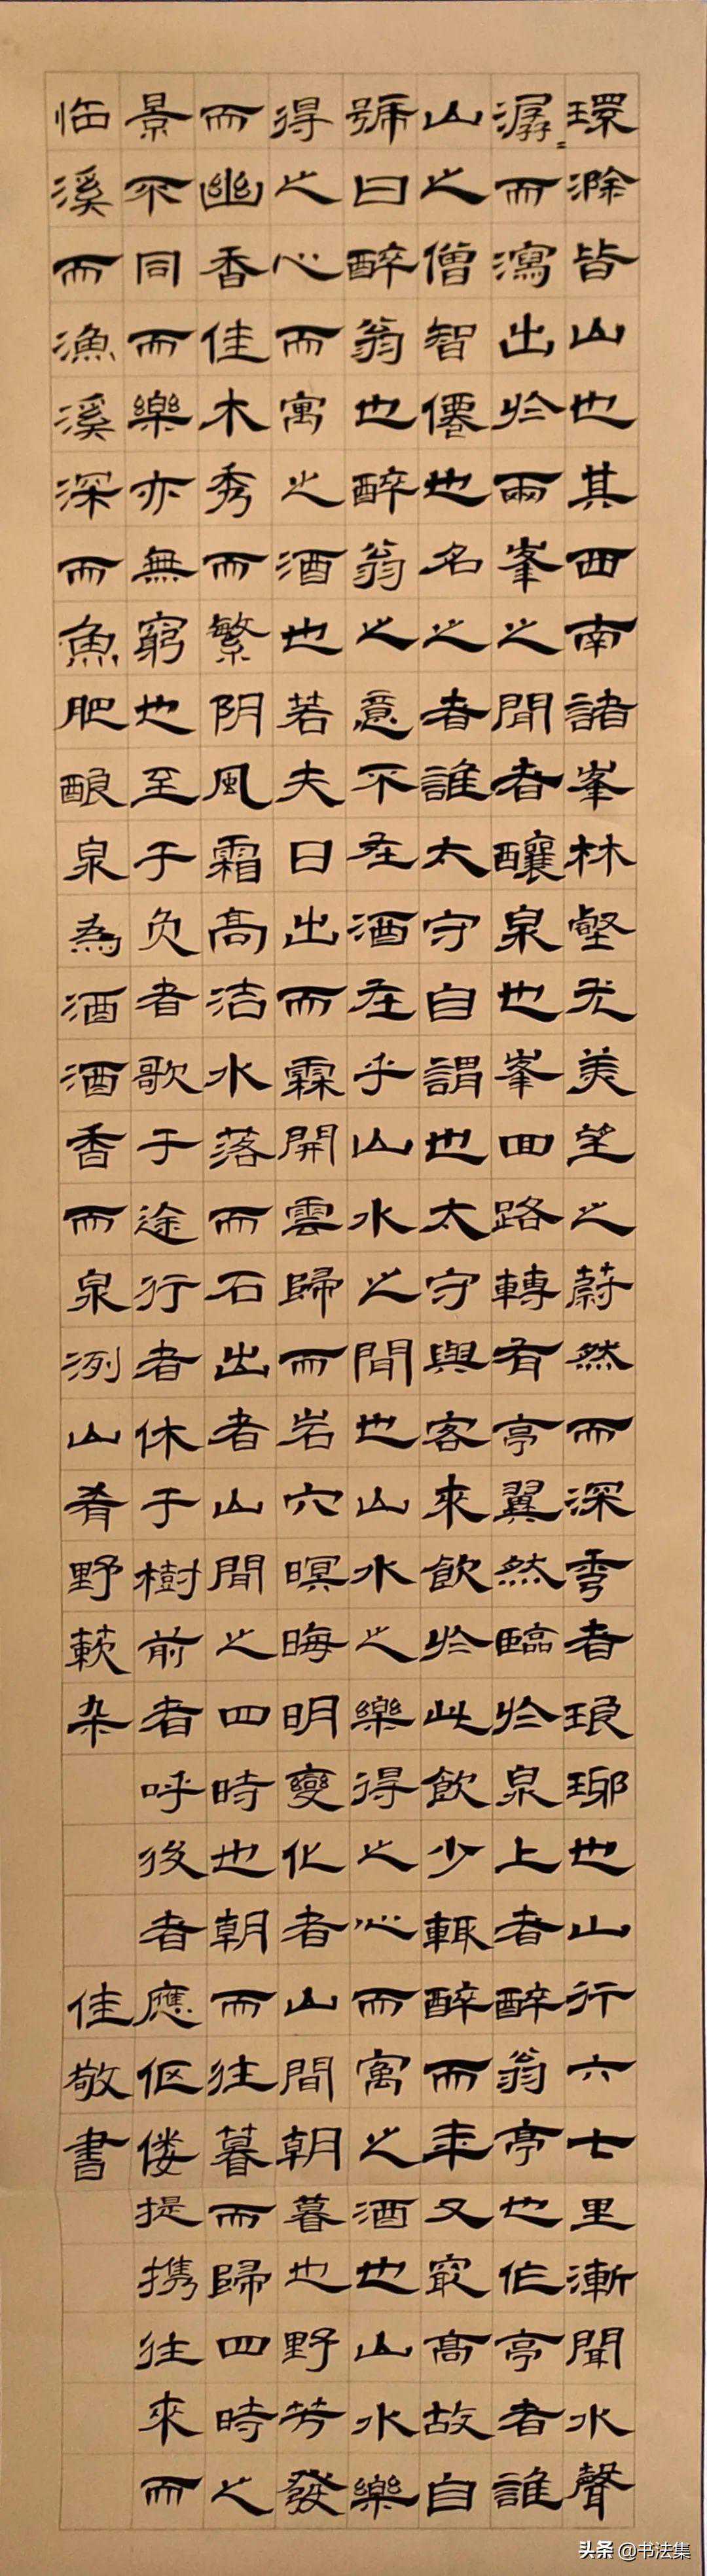 環滁皆山也其西南諸峯林壑尤美望之蔚然而深秀者琅琊也山行六七里漸聞水聲
潺=而瀉出於兩峯之間者釀泉也峯回路轉有亭翼然臨於泉上者醉翁亭也作亭者誰
山之僧智僊也名之者誰太守自謂也太守與客來飲於此飲少輒醉而年又最高故自
號曰醉翁也醉翁之意不在酒在乎山水之間也山水之樂得之心而寓之酒也山水樂
得之心而寓之酒也若夫日出而霖開雲歸而岩穴暝晦明變化者山間朝暮也野芳發
而幽香佳木秀而繁阴風霜高洁水落而石出者山間之四時也朝而往暮而歸四時之
景不同而樂亦無窮也至于负者歌于途行者休于樹前者呼後者應伛偻提携往來而
临溪而漁溪深而魚肥酿泉為酒酒香而泉洌山肴野蔌杂
佳敬書
头条 @书法集